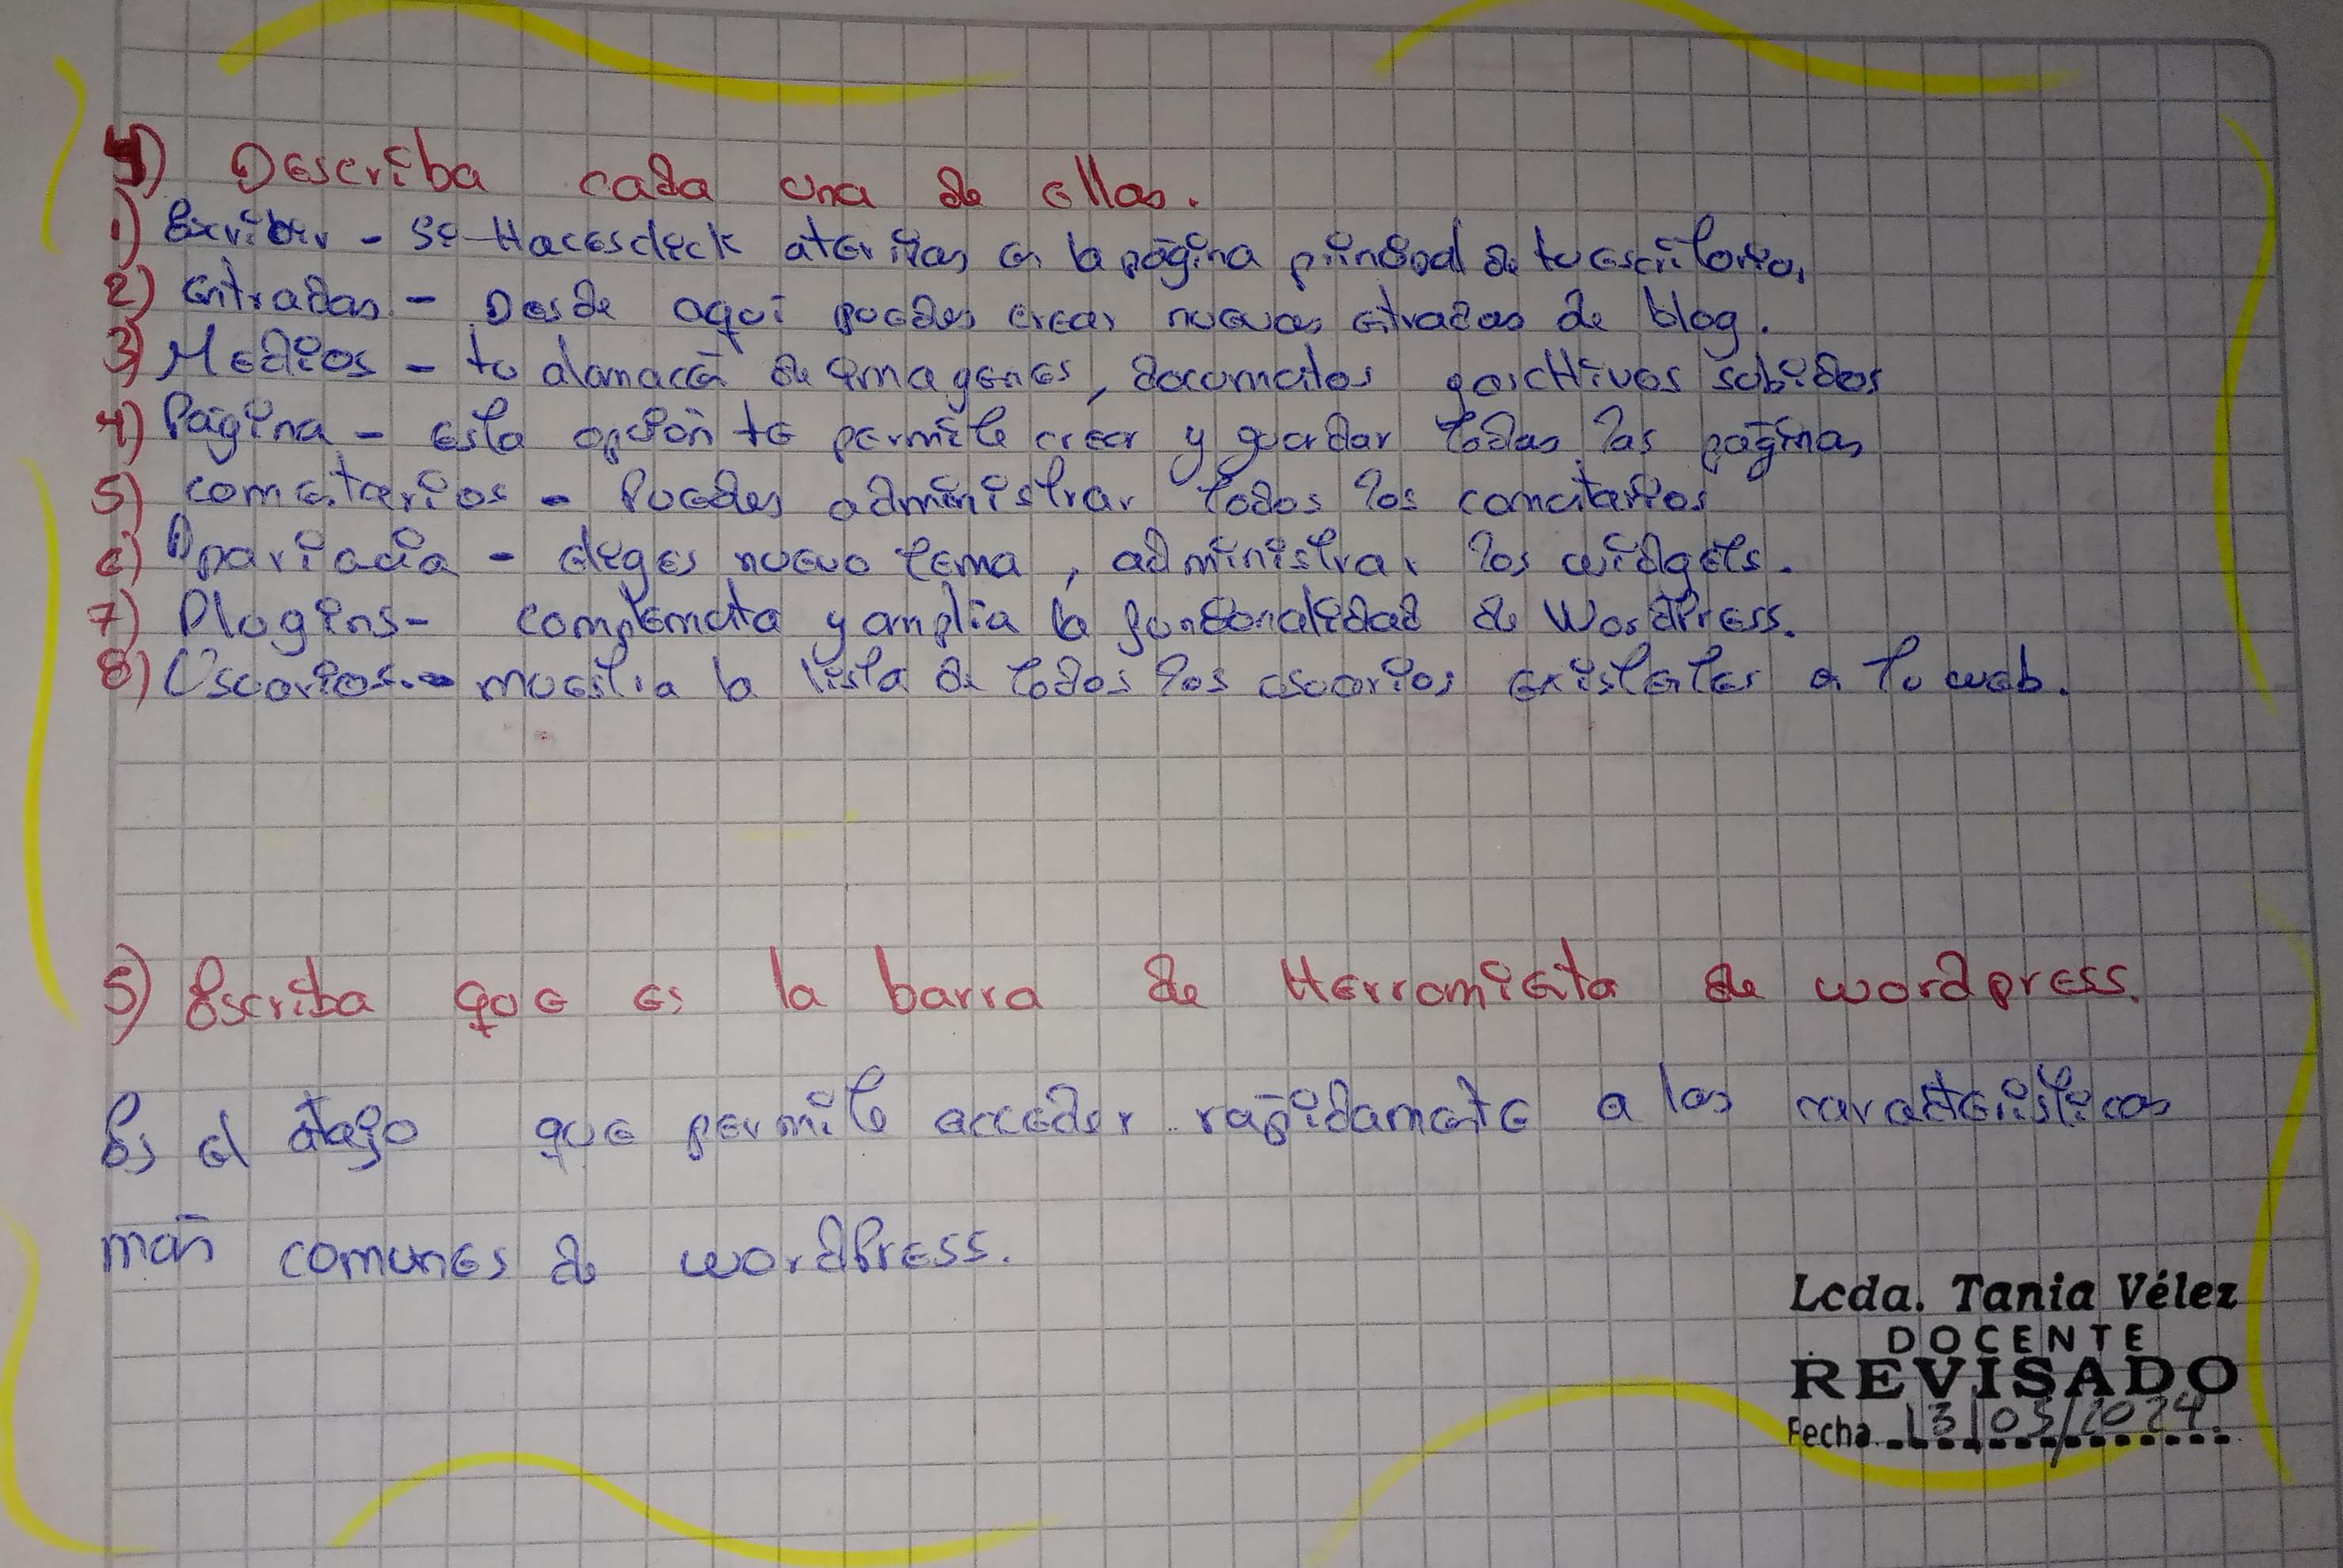 4) Describa cada una de ellas.
1) Escriber - si Haces click aterizas en la página principal de tu escritorio,
2) entradas - Desde aquí puedes crear nuevas entradas de blog.
3) Medios - tu almacén de imagenes, documentos y archivos subidos
4) Página - esta opción te permite crear y guardar todas las páginas
5) comentarios - Puedes administrar todos los comentarios
6) Apariencia - eliges nuevo tema, administrar los widgets.
7) Plugins - complementa y amplia la funcionalidad de WordPress.
8) Usuarios.- muestra la lista de todos los usuarios existentes en tu web.
5) Escriba que es la barra de Herramienta de wordpress.
Es el atajo que permite acceder rápidamente a las características
más comunes de wordPress.
Lcda. Tania Vélez
DOCENTE
REVISADO
Fecha 13/05/2024